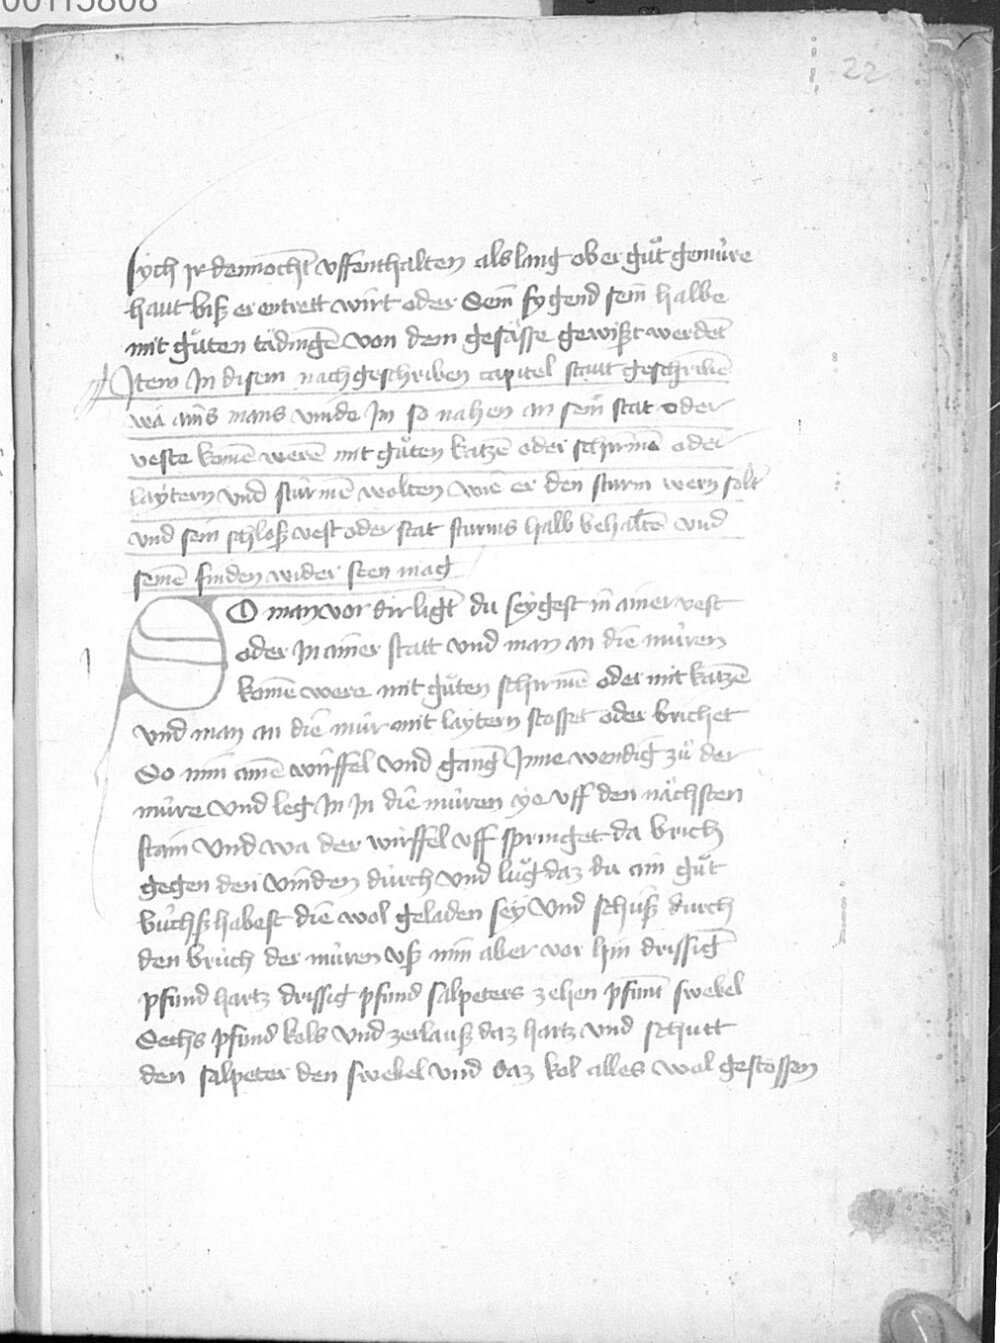 00115808
22
sych jr dennocht vffenthalten als lang ob er gůt gemüre
haut biß er entrett wirt oder Sein fygend sein halbe
mit gůten tädingē von dem gesässe gewißt werdēt
Item In disem nachgeschriben capitel stautt geschribē
wä ains mans vinde Im so nahen an sein stat oder
veste komē werē mit gůten katzē oder schirmē oder
laÿtern vnd stürmē wolten wie er den sturm wern solt
vnd sein schloß vest oder stat sturms halb behaltē vnd
seinē finden wider sten mag
SO man vor dir ligt du seygest in ainer vest
oder In ainer statt vnd man an die müren
komē were mit gůten schirmē oder mit katzē
vnd man an die mür mit laÿtern stosset oder brichet
So nim ainē würffel vnd gang Inne wendig zů der
müre vnd leg In In die müren ye vff den nächsten
stain vnd wa der würffel vff springet da brich
gegen den vinden durch vnd lůg daz du ain gůt
büchß habest die wol geladen seÿ vnd schüß durch
den bruch der müren vß nim aber vor hin drissig
pfund hartz drissig pfund salpeters zehen pfunt swebel
Sechs pfund kols vnd zerlauß daz hartz vnd schutt
den salpeter den swebel vnd daz kol alles wol gestossen